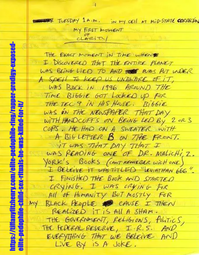 TUESDAY 3 A.M. IN MY CELL AT MID-STATE CORRECTION
MY FIRST MOMENT
of
CLARITY
THE FIRST MOMENT IN TIME WHEN
I DISCOVERED THAT THE ENTIRE PLANET
WAS BEING LIED TO AND WAS PUT UNDER
A SPELL TO KEEP US UNDER IT,
WAS BACK IN 1996 AROUND THE
TIME BIGGIE GOT LOCKED UP FOR
THE TEC 9 IN HIS HOUSE. BIGGIE
WAS IN THE NEWSPAPER THAT DAY
WITH HANDCUFFS ON BEING LED BY 2 or 3
COPS. HE HAD ON A SWEATER WITH
A BIG LETTER B ON THE FRONT.
IT WAS THAT DAY THAT I
WAS READING ONE OF DR. MALACHI Z.
YORK'S BOOKS (CANT REMEMBER WHICH ONE)
I BELIEVE IT WAS TITLED "LEVIATHAN 666".
I FINISHED THE BOOK AND STARTED
CRYING. I WAS CRYING FOR
ALL OF HUMANITY BUT MOSTLY FOR
MY BLACK PEOPLE CAUSE I THEN
REALIZED IT IS ALL A SHAM.
THE GOVERNMENT, RELIGIONS, POLITICS,
THE FEDERAL RESERVE, I.R.S. AND
EVERYTHING THAT WE BELIEVE AND
LIVE BY IS A JOKE.